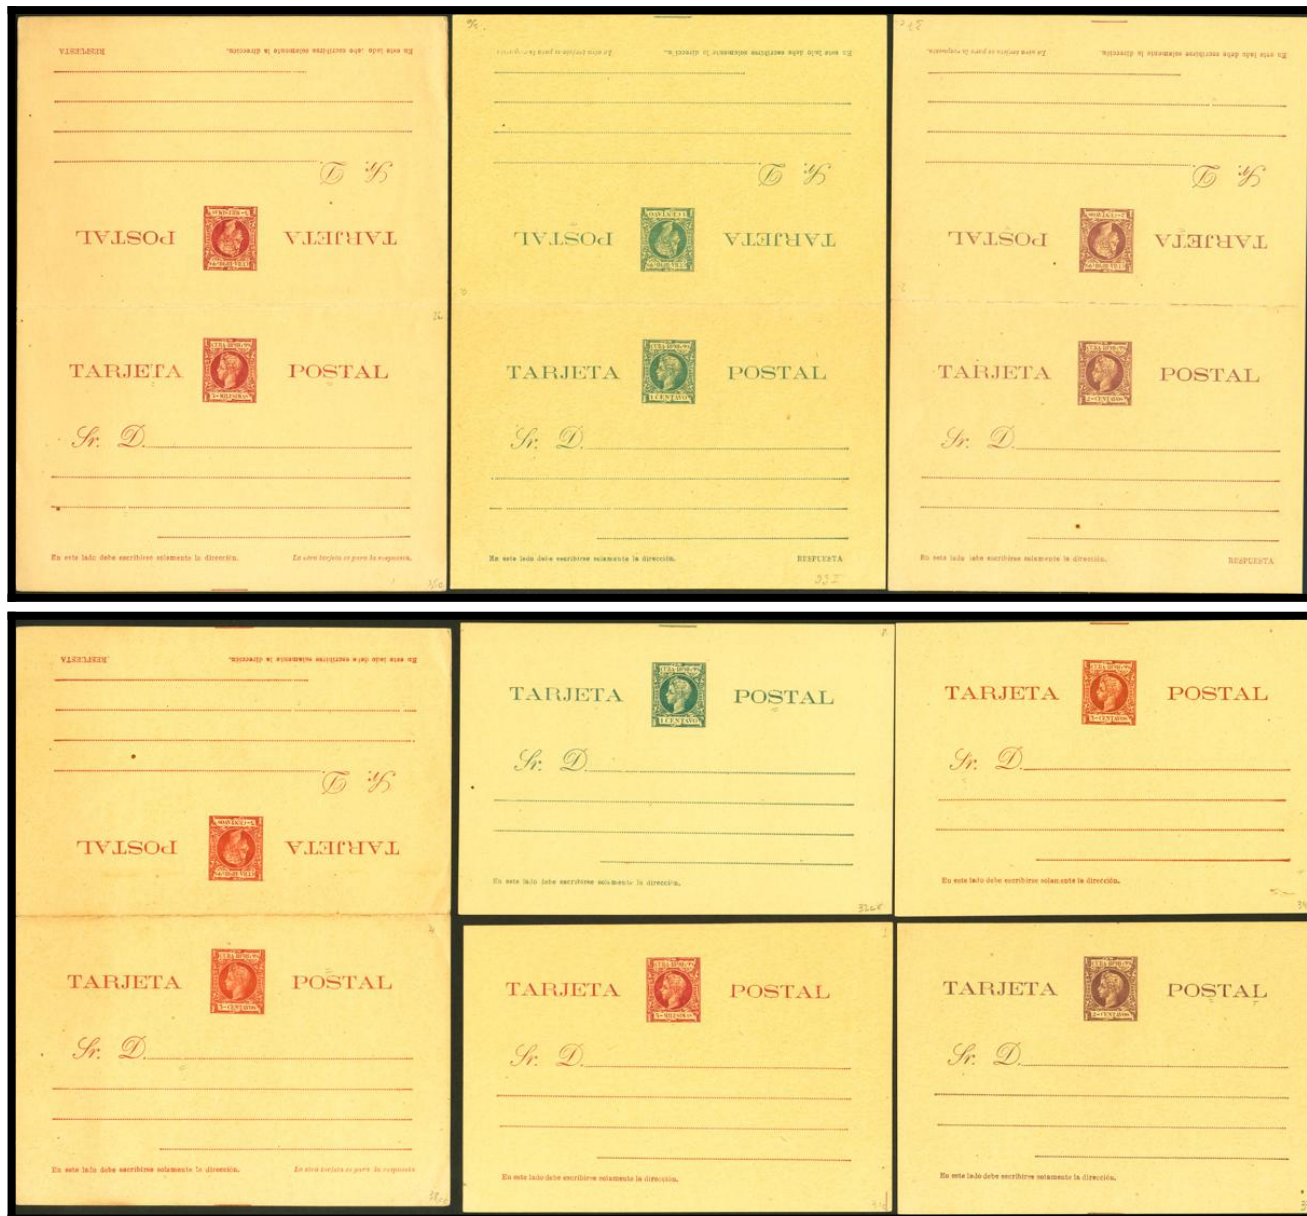 RESPUESTA
En este lado debe escribirse solamente la dirección.
Sr. D.
TARJETA POSTAL
TARJETA POSTAL
Sr. D.
En este lado debe escribirse solamente la dirección.
La otra tarjeta es para la respuesta.
La otra tarjeta es para la respuesta
En este lado debe escribirse solamente la dirección.
Sr. D.
TARJETA POSTAL
1 CENTAVO
TARJETA POSTAL
1 CENTAVO
Sr. D.
En este lado debe escribirse solamente la dirección.
RESPUESTA
33 I
La otra tarjeta es para la respuesta.
En este lado debe escribirse solamente la dirección.
Sr. D.
TARJETA POSTAL
TARJETA POSTAL
Sr. D.
En este lado debe escribirse solamente la dirección.
RESPUESTA
RESPUESTA
En este lado debe escribirse solamente la dirección.
Sr. D.
TARJETA POSTAL
TARJETA POSTAL
Sr. D.
En este lado debe escribirse solamente la dirección.
La otra tarjeta es para la respuesta
TARJETA POSTAL
1 CENTAVO
Sr. D.
En este lado debe escribirse solamente la dirección.
TARJETA POSTAL
Sr. D.
En este lado debe escribirse solamente la dirección.
TARJETA POSTAL
Sr. D.
En este lado debe escribirse solamente la dirección.
TARJETA POSTAL
Sr. D.
En este lado debe escribirse solamente la dirección.